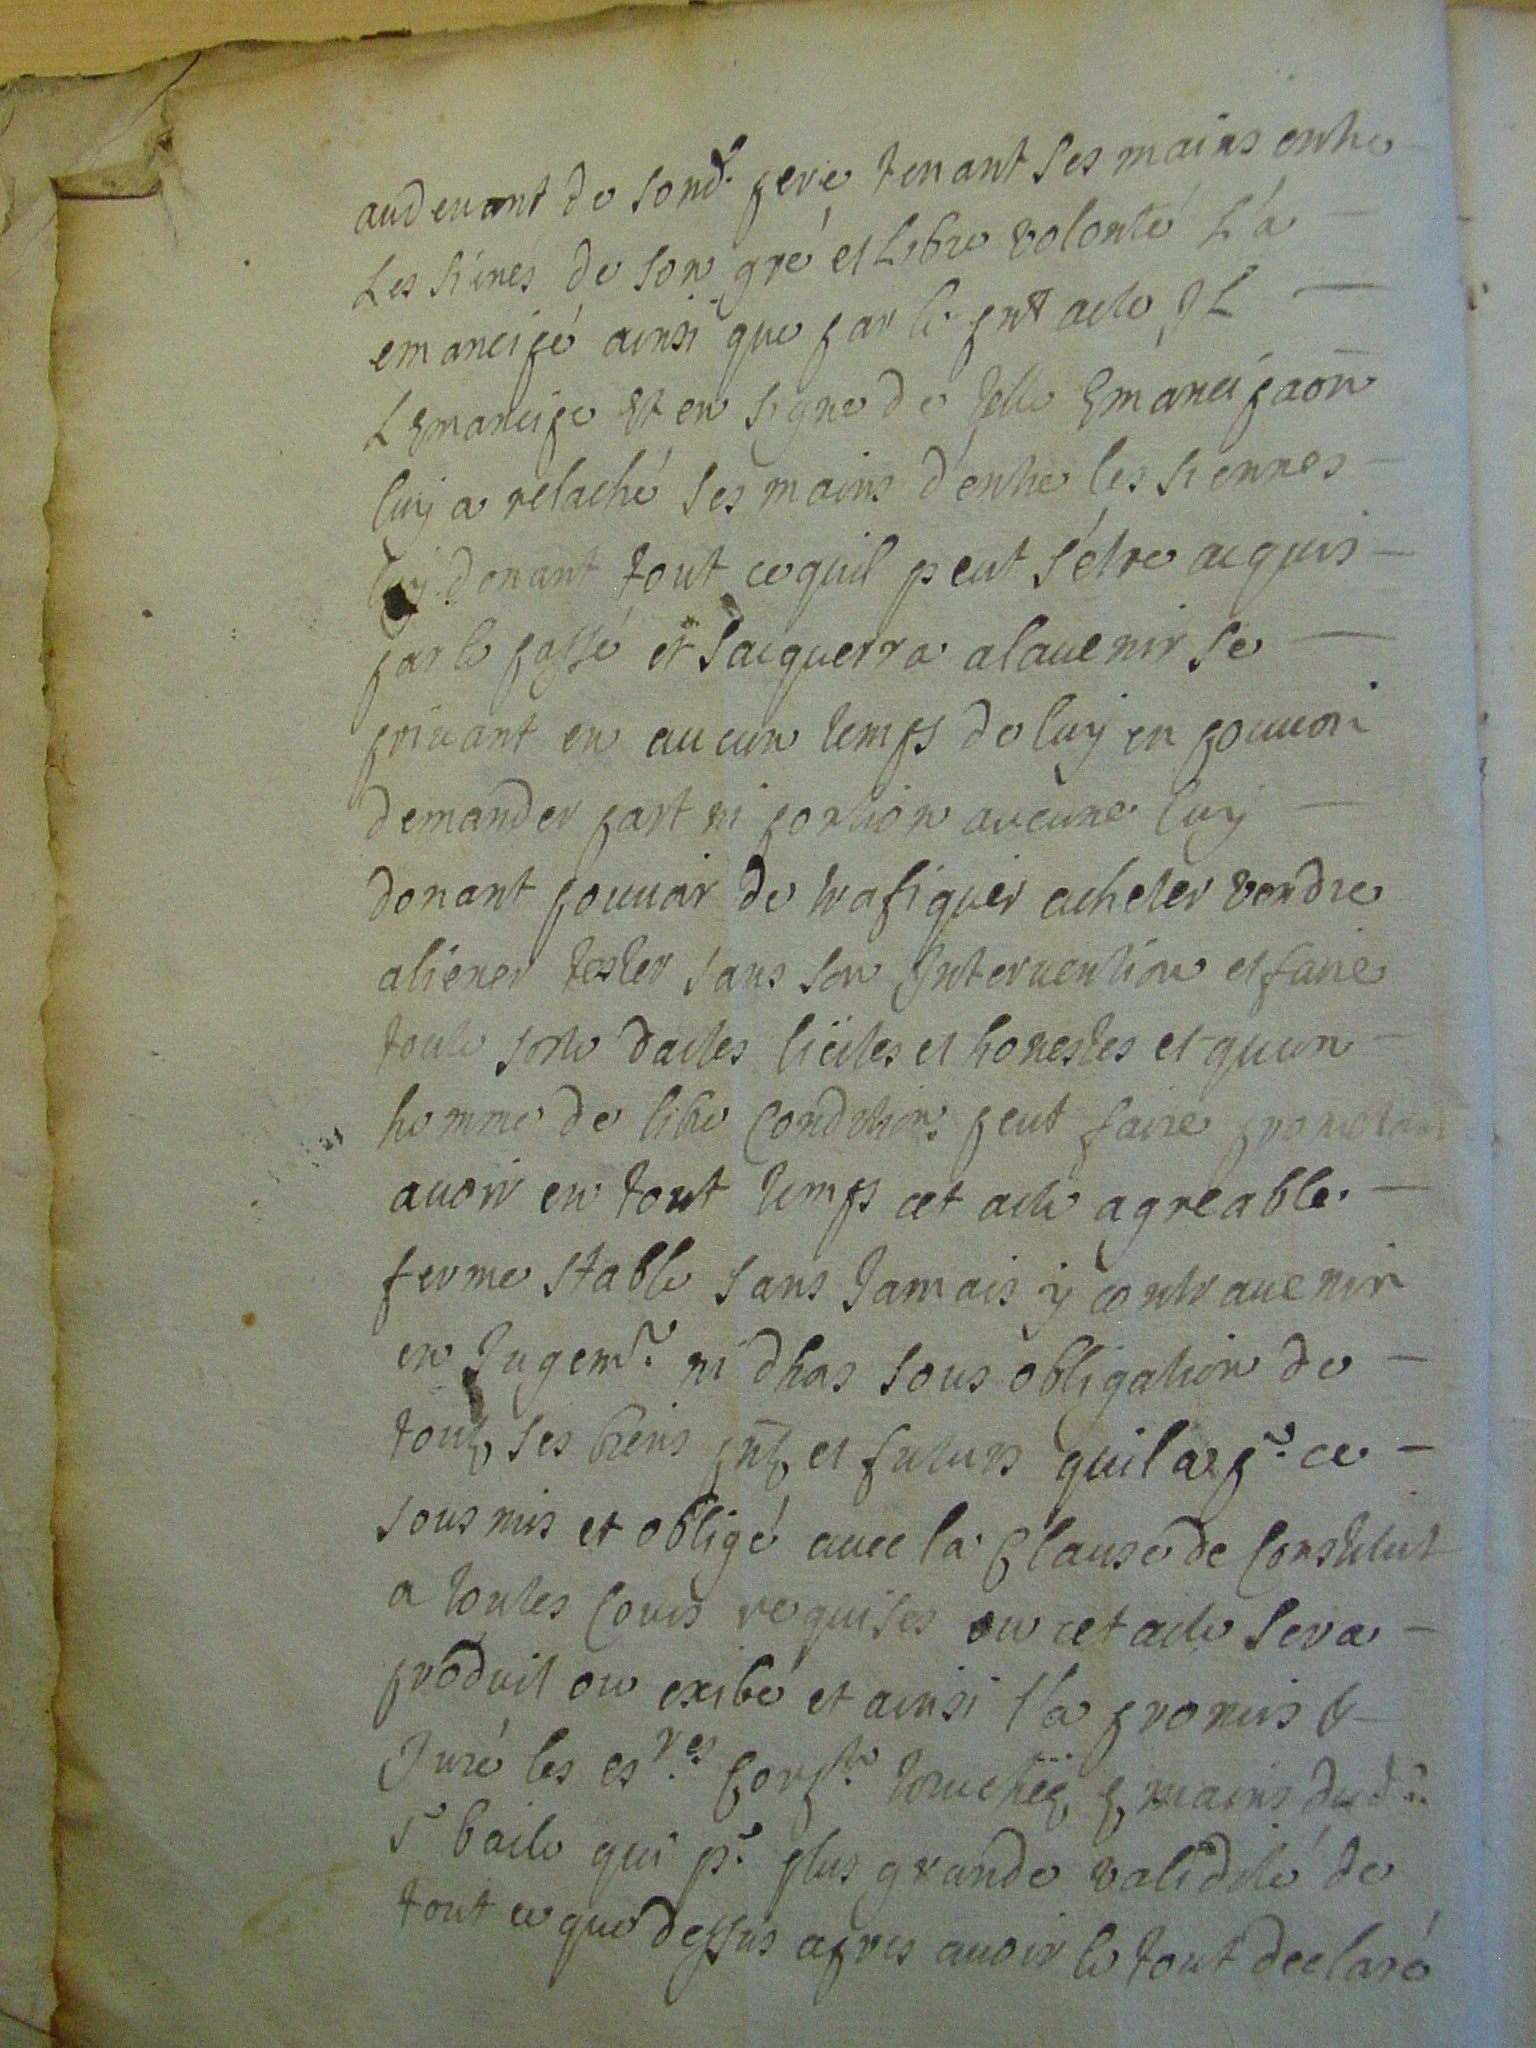 audevant de sond. pere tenant ses mains entre
Les siénes de son gré et Libre volonté L'a
emancipé ainsi que par le pnt acte Il
L'Emancipe Et en signe de telle Emancipaon
luy a relaché ses mains d'entre les siennes
luy donant tout ce quil peut s'étre acquis
par le passé et sacquerra alauenir se
priuant en aucun temps de luy en pouuoir
demander part ni portion aucune luy
donant pouuoir de trafiquer acheter vendre
aliener tester sans son Interuention et faire
toute sorte dactes licites et honestes et quun
homme de libre Condition peut faire prometant
auoir en tout temps cet acte agreable
ferme stable sans Jamais y contrauenir
en Jugemt. ni dhors sous obligation de
touts ses biens pnts et futurs quil a pr. ce
sousmis et obligé auec la Clause de Constitut
a toutes Cours requises ou cet acte sera
produit ou exibé et ainsi l'a promis &
Juré les esres. corplle. touchées es mains dudt.
sr baile qui pr. plus grande validité de
tout ce que dessus apres auoir le tout declaré